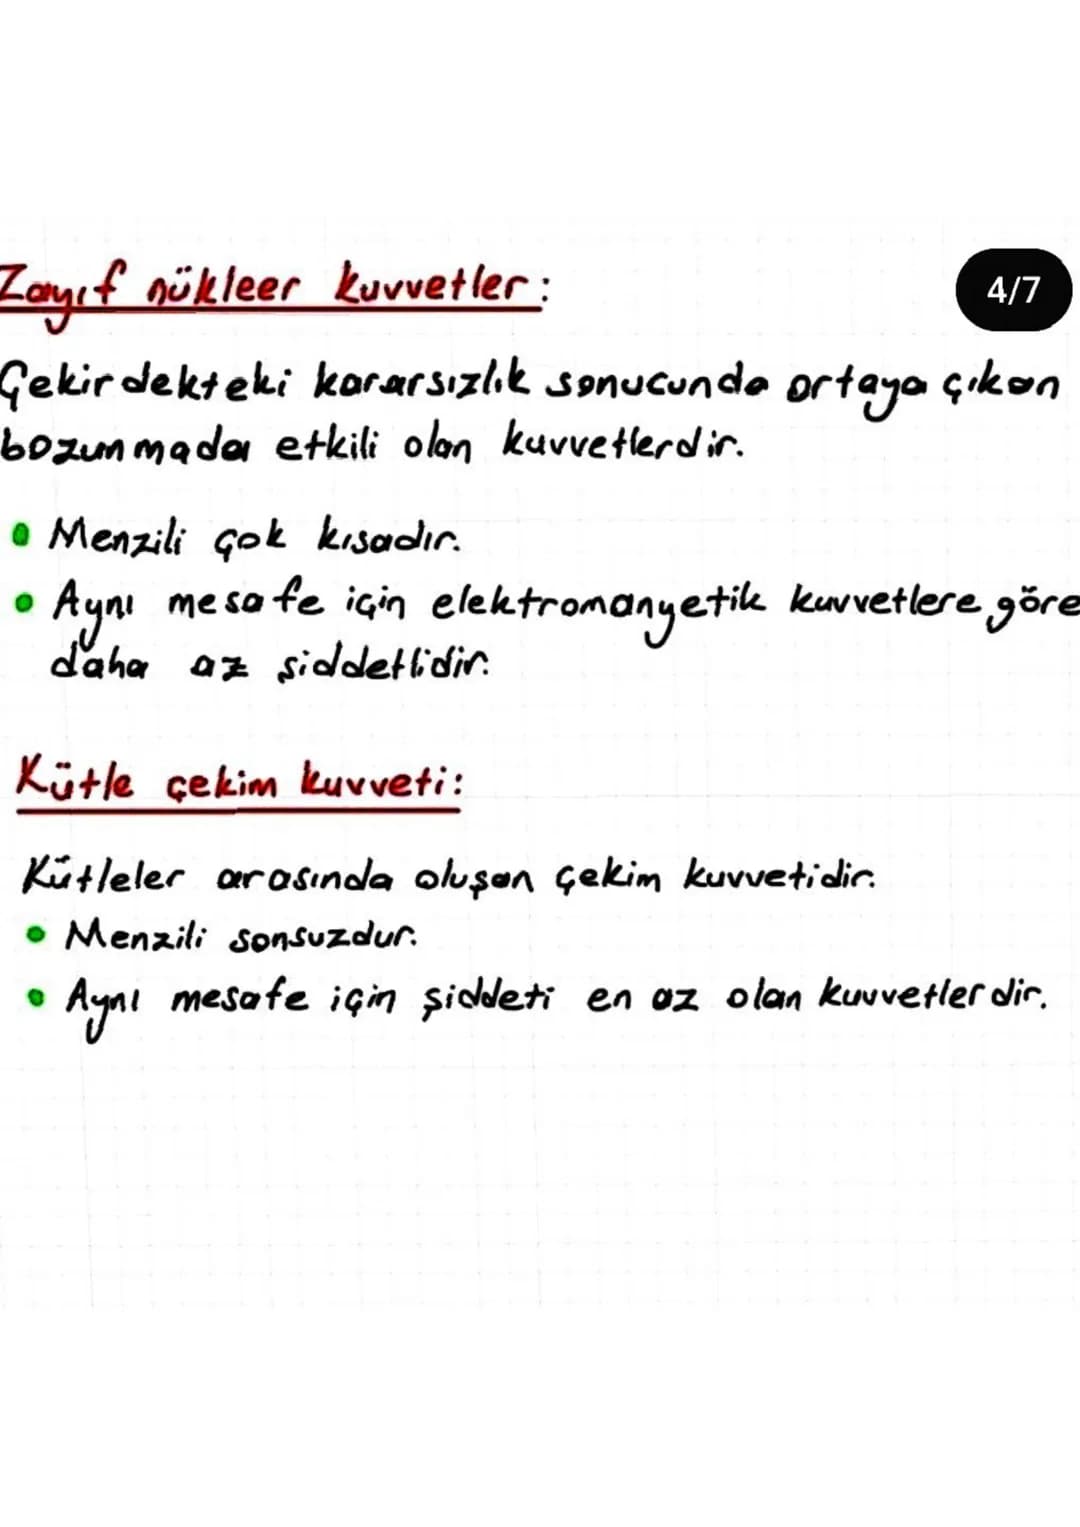 Zayıf nükleer kuvvetler:
4/7
Çekirdekteki kararsızlık sonucunda ortaya çıkan
bozunmada etkili olan kuvvetlerdir.
Menzili çok kısadır.
Aynı mesafe için elektromanyetik kuvvetlere göre
daha az şiddetlidir.
Kütle çekim kuvveti:
Kütleler arasında oluşan çekim kuvvetidir.
Menzili sonsuzdur.
Aynı mesafe için şiddeti en az olan kuvvetlerdir.